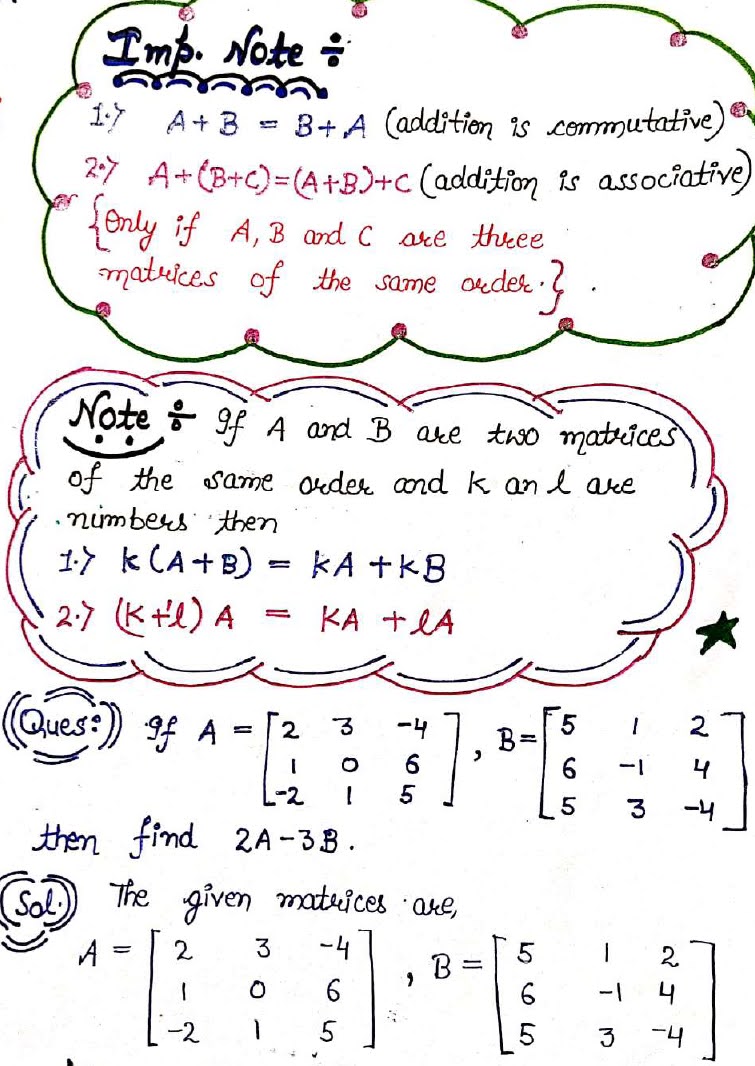 Imp. Note ÷
1.> A + B = B + A (addition is commutative)
2.> A+(B+C)=(A+B)+C (addition is associative)
{Only if A, B and C are three
matrices of the same order.}.
Note ÷ If A and B are two matrices
of the same order and k an l are
numbers then
1.> k(A+B) = kA + kB
2.> (k+l) A = KA + lA
Ques: If A = [2 3 -4], B = [5 1 2]
1 0 6 6 -1 4
-2 1 5 5 3 -4
then find 2A-3B.
Sol. The given matrices are,
A = [2 3 -4], B = [5 1 2]
1 0 6 6 -1 4
-2 1 5 5 3 -4